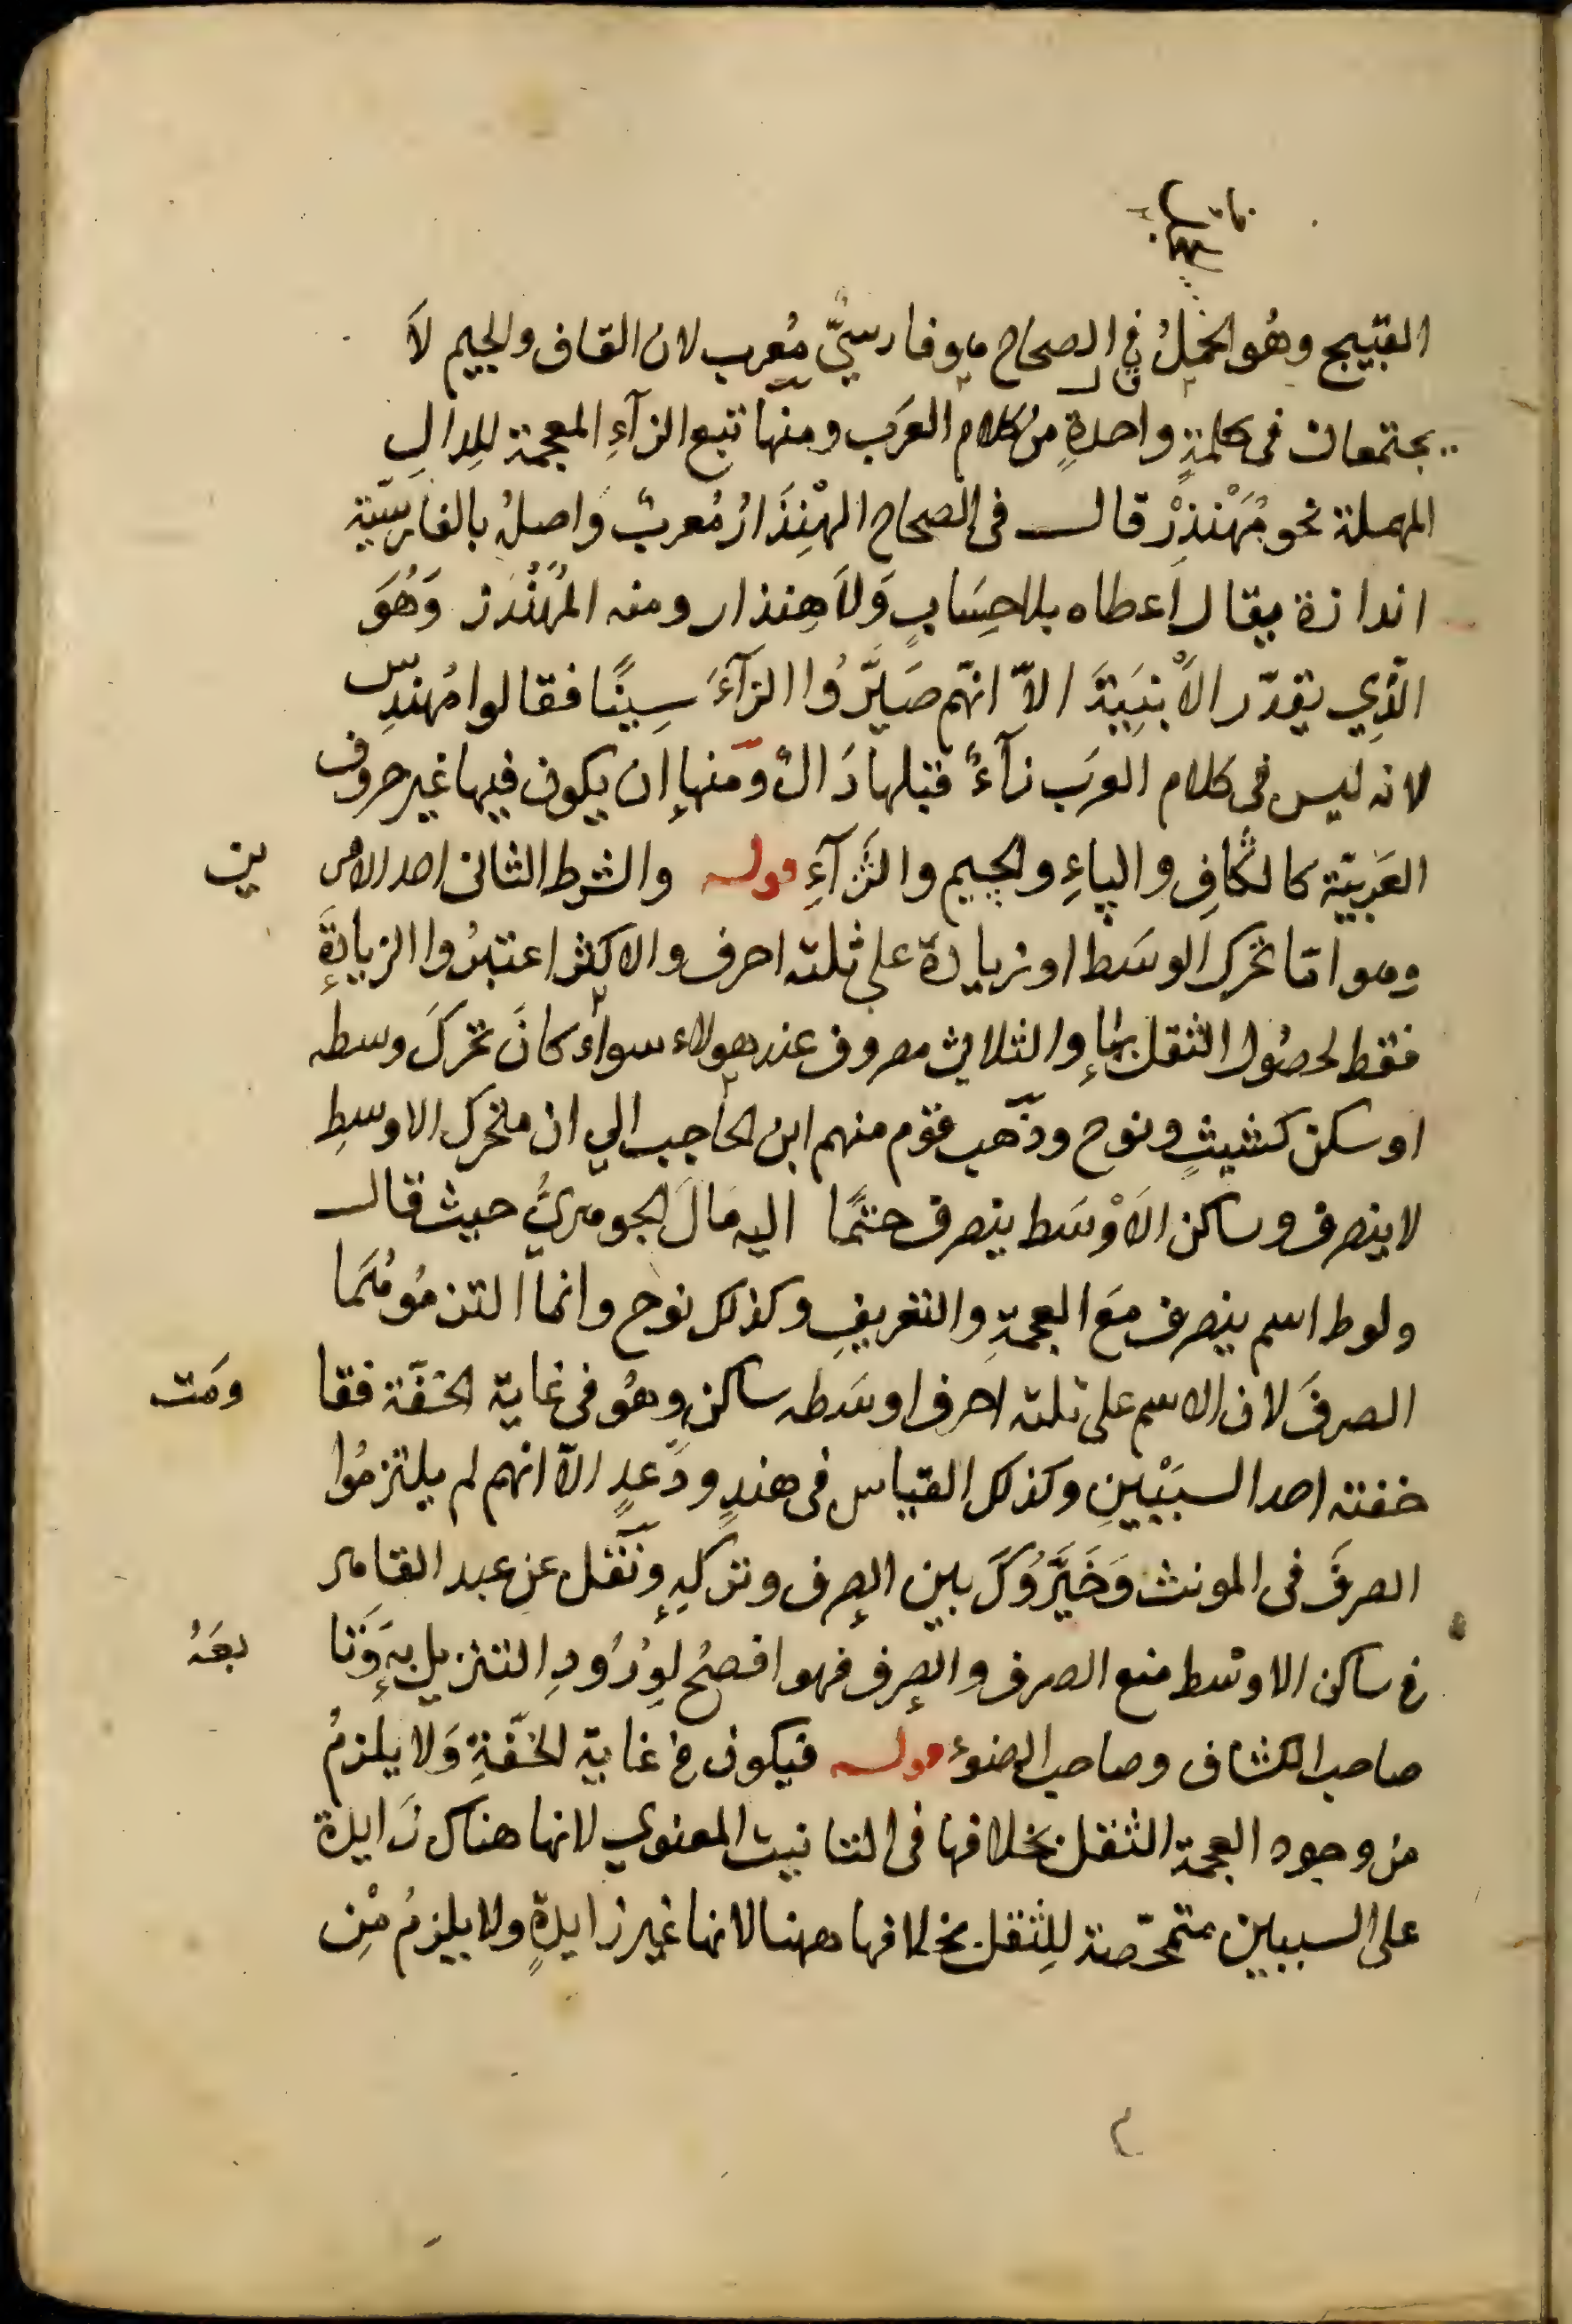 القبيج وهُو الحَجَلُ قال فى الصحاح هو فارسىٌّ مُعرب لان القاف والجيم لاَ
يجتمعان فى كلمةٍ واحدةٍ من كلام العرَب ومنها تبع الزآءِ المعجمة للِدالِ
المهملة نحو مُهَنْدِزْ قال فى الصحاح الهِنْدَازُ مُعربٌ واصلُه بالفارسّية
اندازة يقال اَعطاه بلاحِسَابٍ وَلاَ هِنداز ومنه المُهَنْدز وَهُوَ
الّذِي يقدّر الاَبْنِيَةَ الاّ انّهم صَيَّرُوا الزآءَ سِينًا فقالوا مُهندِس
لانه ليس فى كلام العرَب زآءٌ قبلها دَالٌ ومنها ان يكون فيها غير حروف
العَربيّة كالگافِ والپاءِ والچيم والژآءِ قوله والشرط الثانى احد الامرين
وهو امّا تحرك الوسَط او زيادة على ثلثه احرف والاكثر اعتبرُوا الزيادةَ
فقط لحصُول الثقل بها والثلاثى مصروف عند هولاء سواءٌ كانَ تحركَ وسطه
او سكن كشيثٍ ونوح وذَهب قوم منهم ابن الحاجب الي ان متحرك الاوسطِ
لا ينصرف وساكن الاَوْسَط ينصرف حتمًا اليه مَالَ الجوهريُّ حيث قال
ولوط اسم ينصرف مَع العجمةِ والتعريفِ وكذلك نوح وانما التزمُوهُمَا
الصرفَ لان الاسم على ثلثه احرف اوسَطه ساكن وهُو فى غاية الخفّة فقاومَت
خفته احد السببَيْنِ وكذلك القياس فى هندٍ ودَعدٍ الاّ انهم لم يلتزمُوا
الصرفَ فى المونث وَخَيَّرُوكَ بين الصرف وتركِهِ ونُقل عن عبد القاهر
فى ساكن الاوسَط منع الصرف والصرف فهو افصحُ لِوُرُودِ التنزيل بهِ وَتابعَهُ
صاحب الكشاف وصاحب الضوء قوله فيكون فى غاية الخفّةِ وَلا يلزمُ
من وجود العجمة الثقل بخلافها فى التانيث المعنوي لانها هناك زَايدة
على السببين متمحّضة للِثقل بخلافها ههنا لانها غير زايدةٍ ولا يلزمُ مْنِ